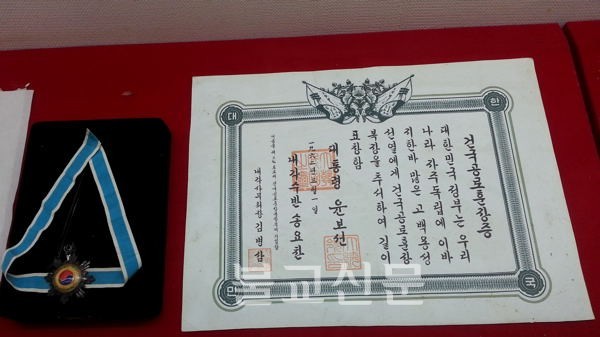 대한
민국
건국공로훈장증
대한민국 정부는 우리
나라 자주독립에 이바
지한바 많은 고 백용성
선열에게 건국공로훈장
복장을 추서하여 길이
표창함
대통령 윤보선
내각수반 송요찬
내각사무처장 김병삼
불교신문